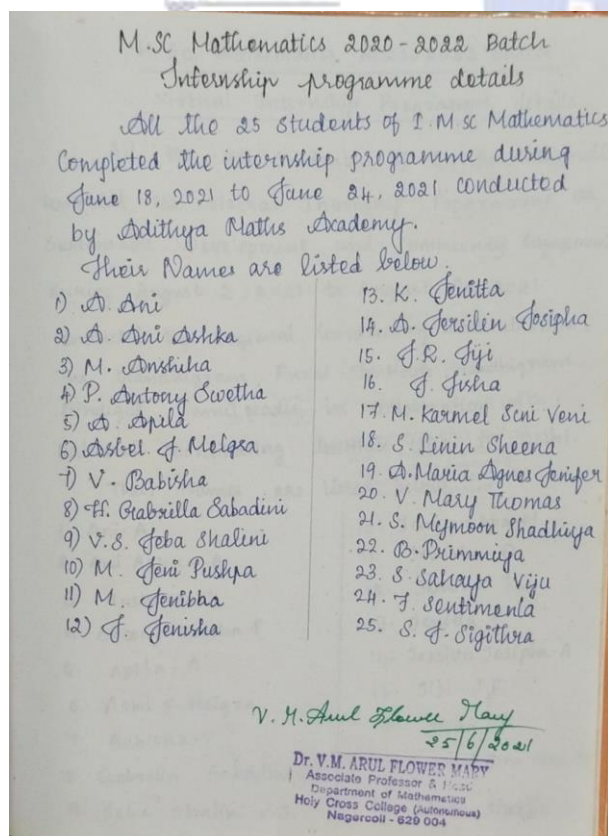 M.SC Mathematics 2020-2022 Batch
Internship programme details
All the 25 students of I M.SC Mathematics
Completed the internship programme during
June 18, 2021 to June 24, 2021 conducted
by Adithya Maths Academy.
Their Names are listed below.
1) A. Ani
2) A. Ani Ashka
3) M. Anshiha
4) P. Antony Swetha
5) A. Apila
6) Asbel. J. Melgra
7) V. Babisha
8) H. Gabrilla Sabadini
9) V.S. Jeba Shalini
10) M. Jeni Pushpa
11) M. Jenibha
12) J. Jenisha
13. K. Jenitta
14. A. Jersilin Josipha
15. J.R. Jiji
16. J. Jisha
17. M. Karmel Scni Veni
18. S. Linin Sheena
19. A. Maria Agnes Jenifer
20. V. Mary Thomas
21. S. Mymoon Shadhiya
22. B. Primmiya
23. S. Sahaya Viju
24. J. Sentimenla
25. S. J. Sigithra
V. M. Arul Flower Mary
25/6/2021
Dr. V.M. ARUL FLOWER MARY
Associate Professor & Head
Department of Mathematics
Holy Cross College (Autonomous)
Nagercoil - 629 004